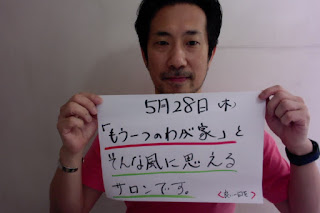 5月28日(木)
「もう一つのわが家」と
そんな風に思える
サロンです。